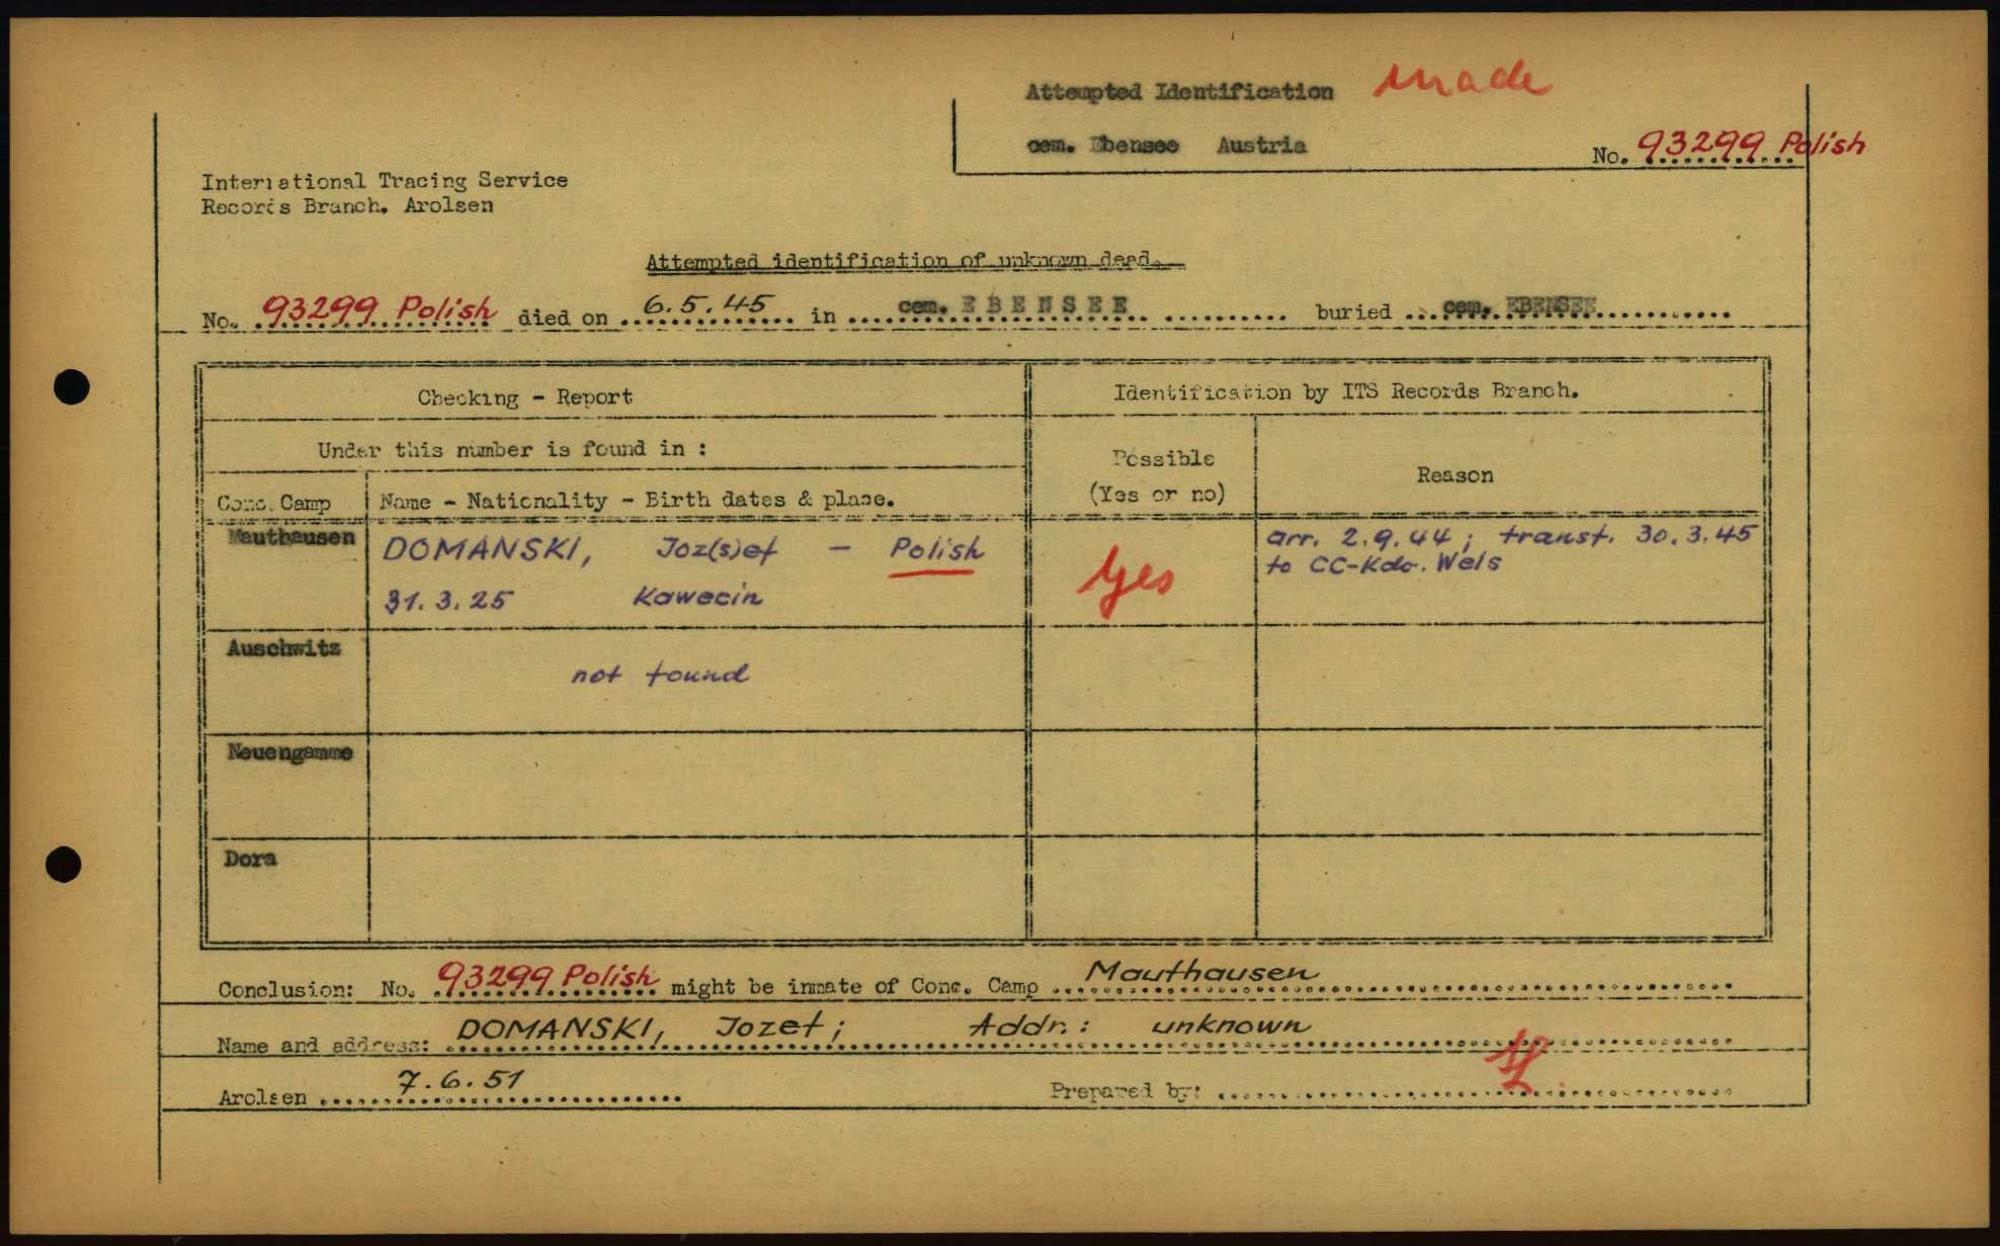 Attempted Identification made
cem. Ebensee Austria
No. 93299 Polish
International Tracing Service
Records Branch. Arolsen
Attempted identification of unknown dead.
No. 93299 Polish died on 6.5.45 in cem. EBENSEE buried cem. EBENSEE
Checking - Report
Identification by ITS Records Branch.
Under this number is found in :
Possible
(Yes or no)
Reason
Conc. Camp
Name - Nationality - Birth dates & place.
Mauthausen
DOMANSKI, Joz(s)ef - Polish
31.3.25 Kawecin
Yes
arr. 2.9.44; transf. 30.3.45
to CC-Kdo. Wels
Auschwitz
not found
Neuengamme
Dora
Conclusion: No. 93299 Polish might be inmate of Conc. Camp Mauthausen
Name and address: DOMANSKI, Jozef; Addr.: unknown
Arolsen 7.6.51
Prepared by: